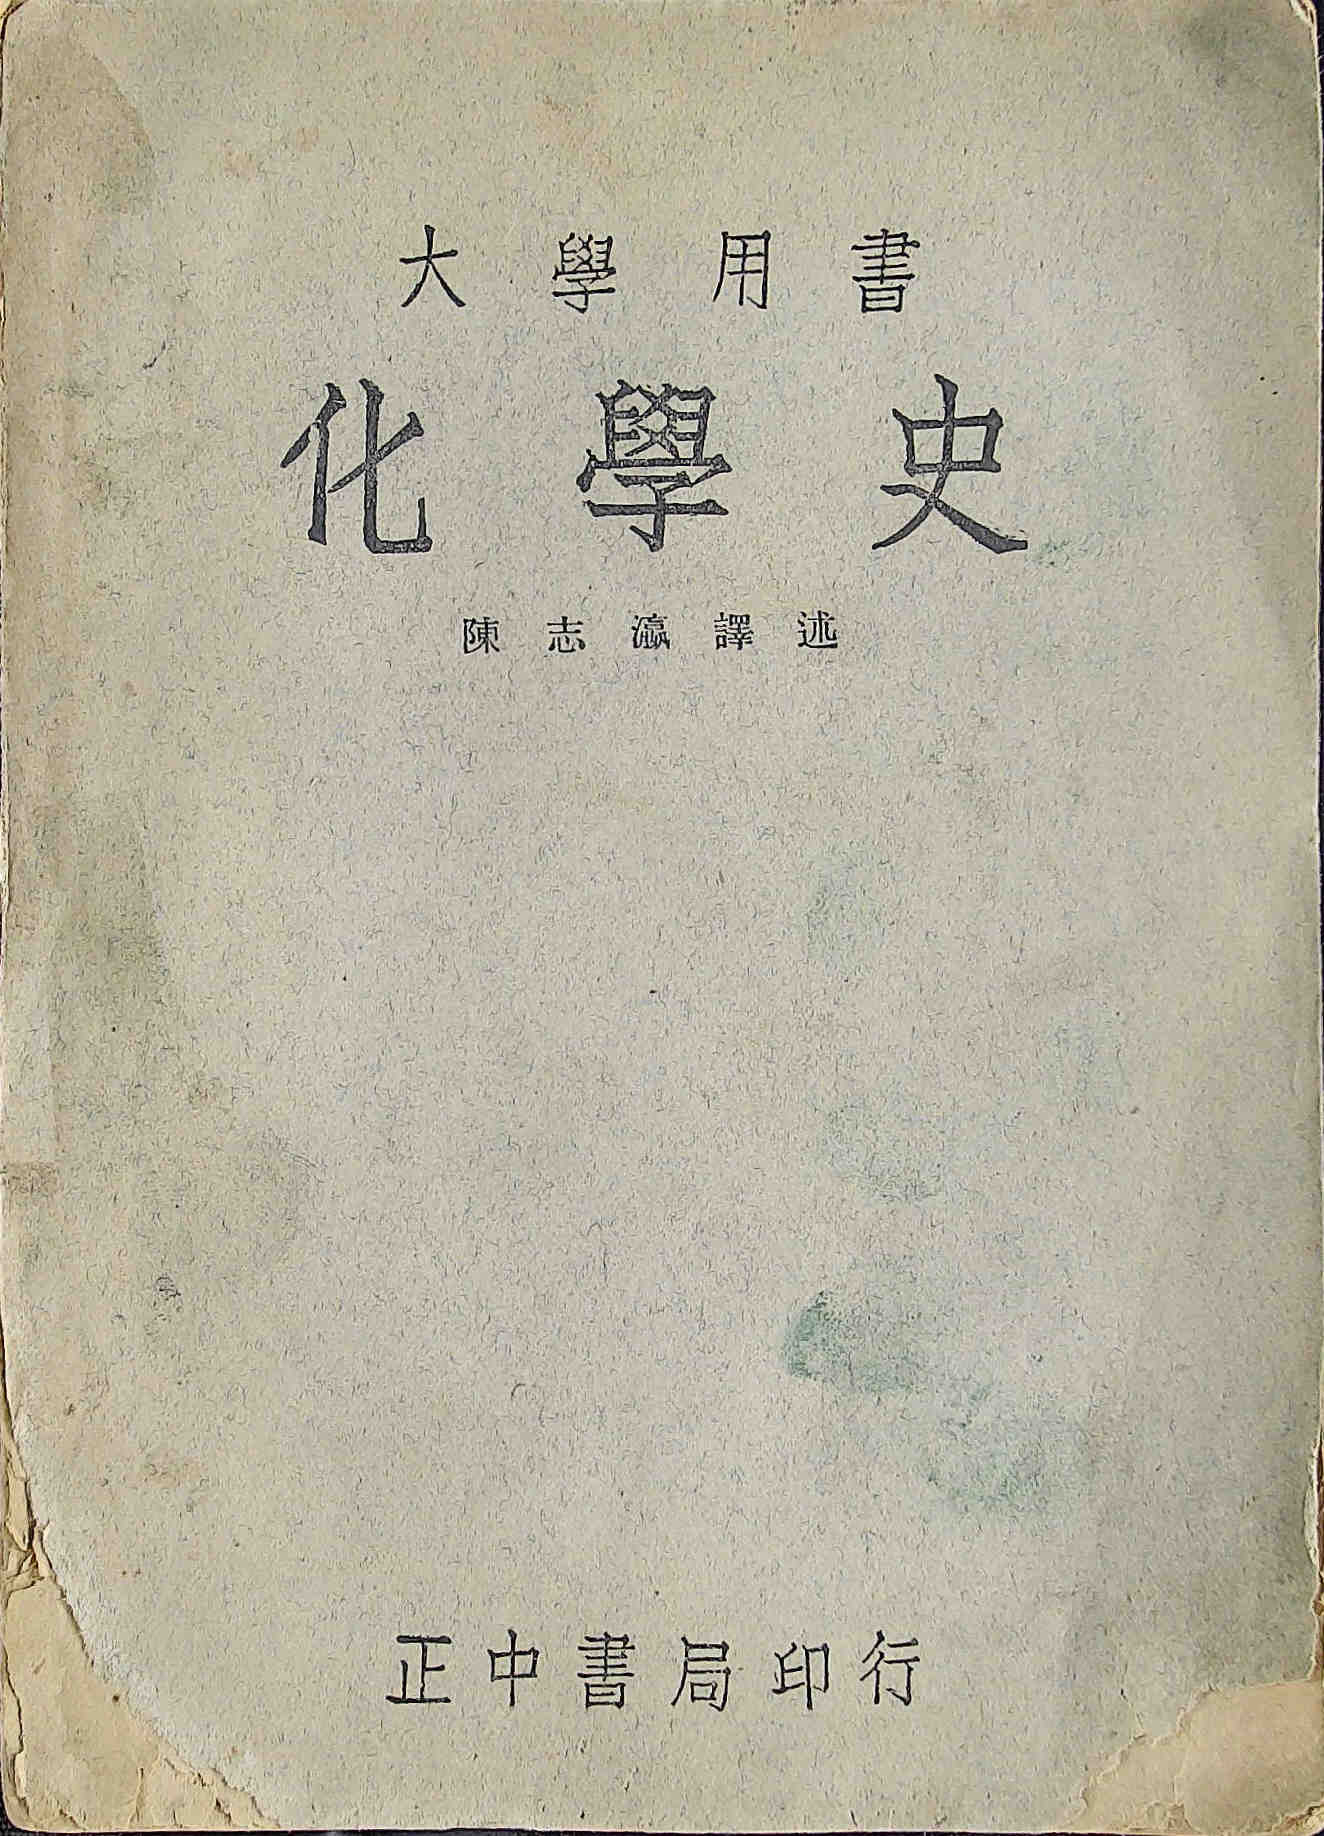 大學用書
化學史
陳志瀛譯述
正中書局印行